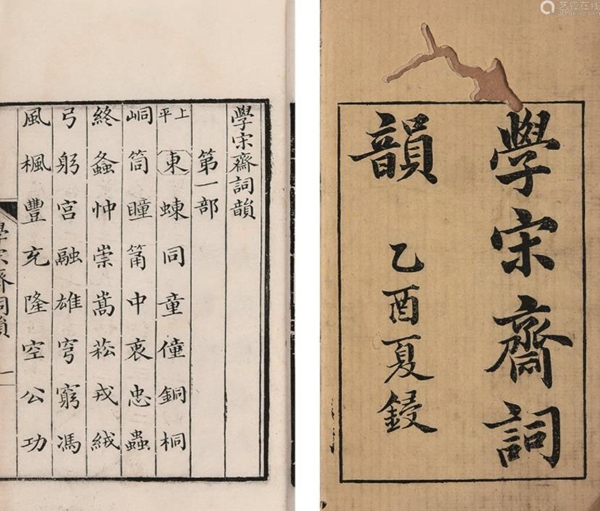 學宋齋詞
韻
乙酉夏鋟
學宋齋詞韻
第一部
上平東蝀同童僮銅桐
峒筒瞳筩中衷忠蟲
終螽忡崇嵩菘戎絨
弓躬宮融雄穹窮馮
風楓豐充隆空公功
學宋齋詞韻 一